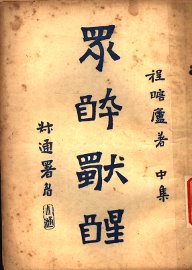 程瞻廬著 中集
眾醉獨醒
通署